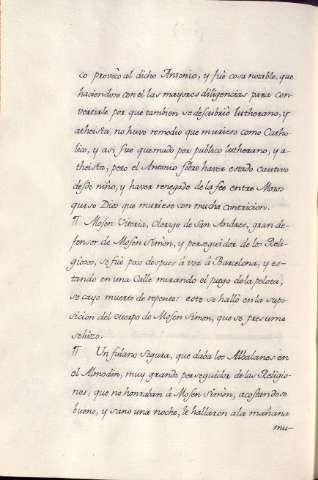 co provocò al dicho Antonio, y fuè cosa notable, que
haciendose con el las mayores diligencias para con-
vertirle por que tambien se descubriò lutherano, y
atheista, no huvo remedio que muriese como Catho-
lico, y asi fue quemado por publico lutherano, y a-
theista; pero el Antonio siendo haver estado cautivo
desde niño, y haver renegado de la fee entre Moros
quiso Dios que muriese con mucha contricion.
¶ Mosen Vitoria, Clerigo de San Andres, gran de-
fensor de Mosen Simon, y perseguidor de los Reli-
giosos, se fuè poco despues à vèr à Barcelona, y es-
tando en una Calle mirando el juego de la pelota,
se cayo muerto de repente: este se hallò en la supo-
sicion del cuerpo de Mosen Simon, que se presume
se hizo.
¶ Un fulano Segura, que daba los Albalanes en
el Almodin, muy grande perseguidor de las Religio-
nes, que no honraban à Mosen Simon, acostandose
bueno, y sano una noche, le hallaron a la mañana
mu-